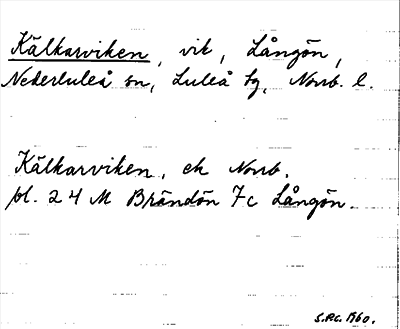 Kälkarviken, vik, Långön,
Nederluleå sn, Luleå tg, Norrb. l.
Kälkarviken, ek Norrb.
bl. 24 M Brändön 7c Långön.
S.P.G. 1960.